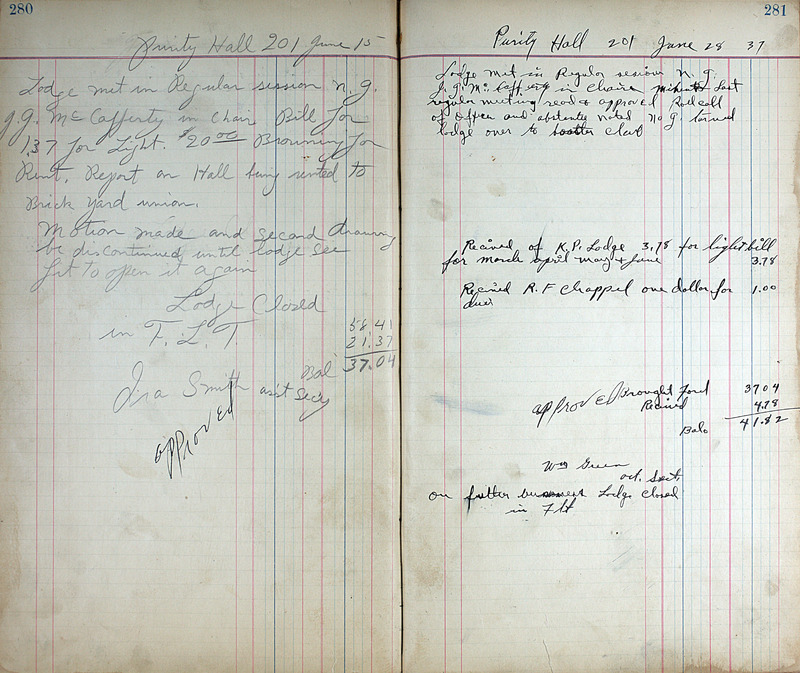 280
Purity Hall 201 June 15
Lodge met in Regular session N.G.
J.G. McCafferty in Chair Bill for
1.37 for Light. $20.00 Browning for
Rent. Report on Hall being rented to
Brick Yard union.
Motion made and second drawing
be discontinued until lodge see
fit to open it again
Lodge Closed
in F. L. T
58.41
21.37
Bal 37.04
Ira Smith asst Secy
approved
281
Purity Hall 201 June 28 37
Lodge met in Regular session N.G.
J.G. McCafferty in Chair Last
regular meeting read & approved Rollcall
of Officer and absentees noted N.G. turned
lodge over to
Recived of K.P. Lodge 3.78 for light bill
for march april may & June 3.78
Recived R.F Chappel one dollar for 1.00
dues
approved Brought Ford 3704
Recived 4.78
Balo 41.82
Wm Green
act. Sect.
on futter Lodge closed
in Flt